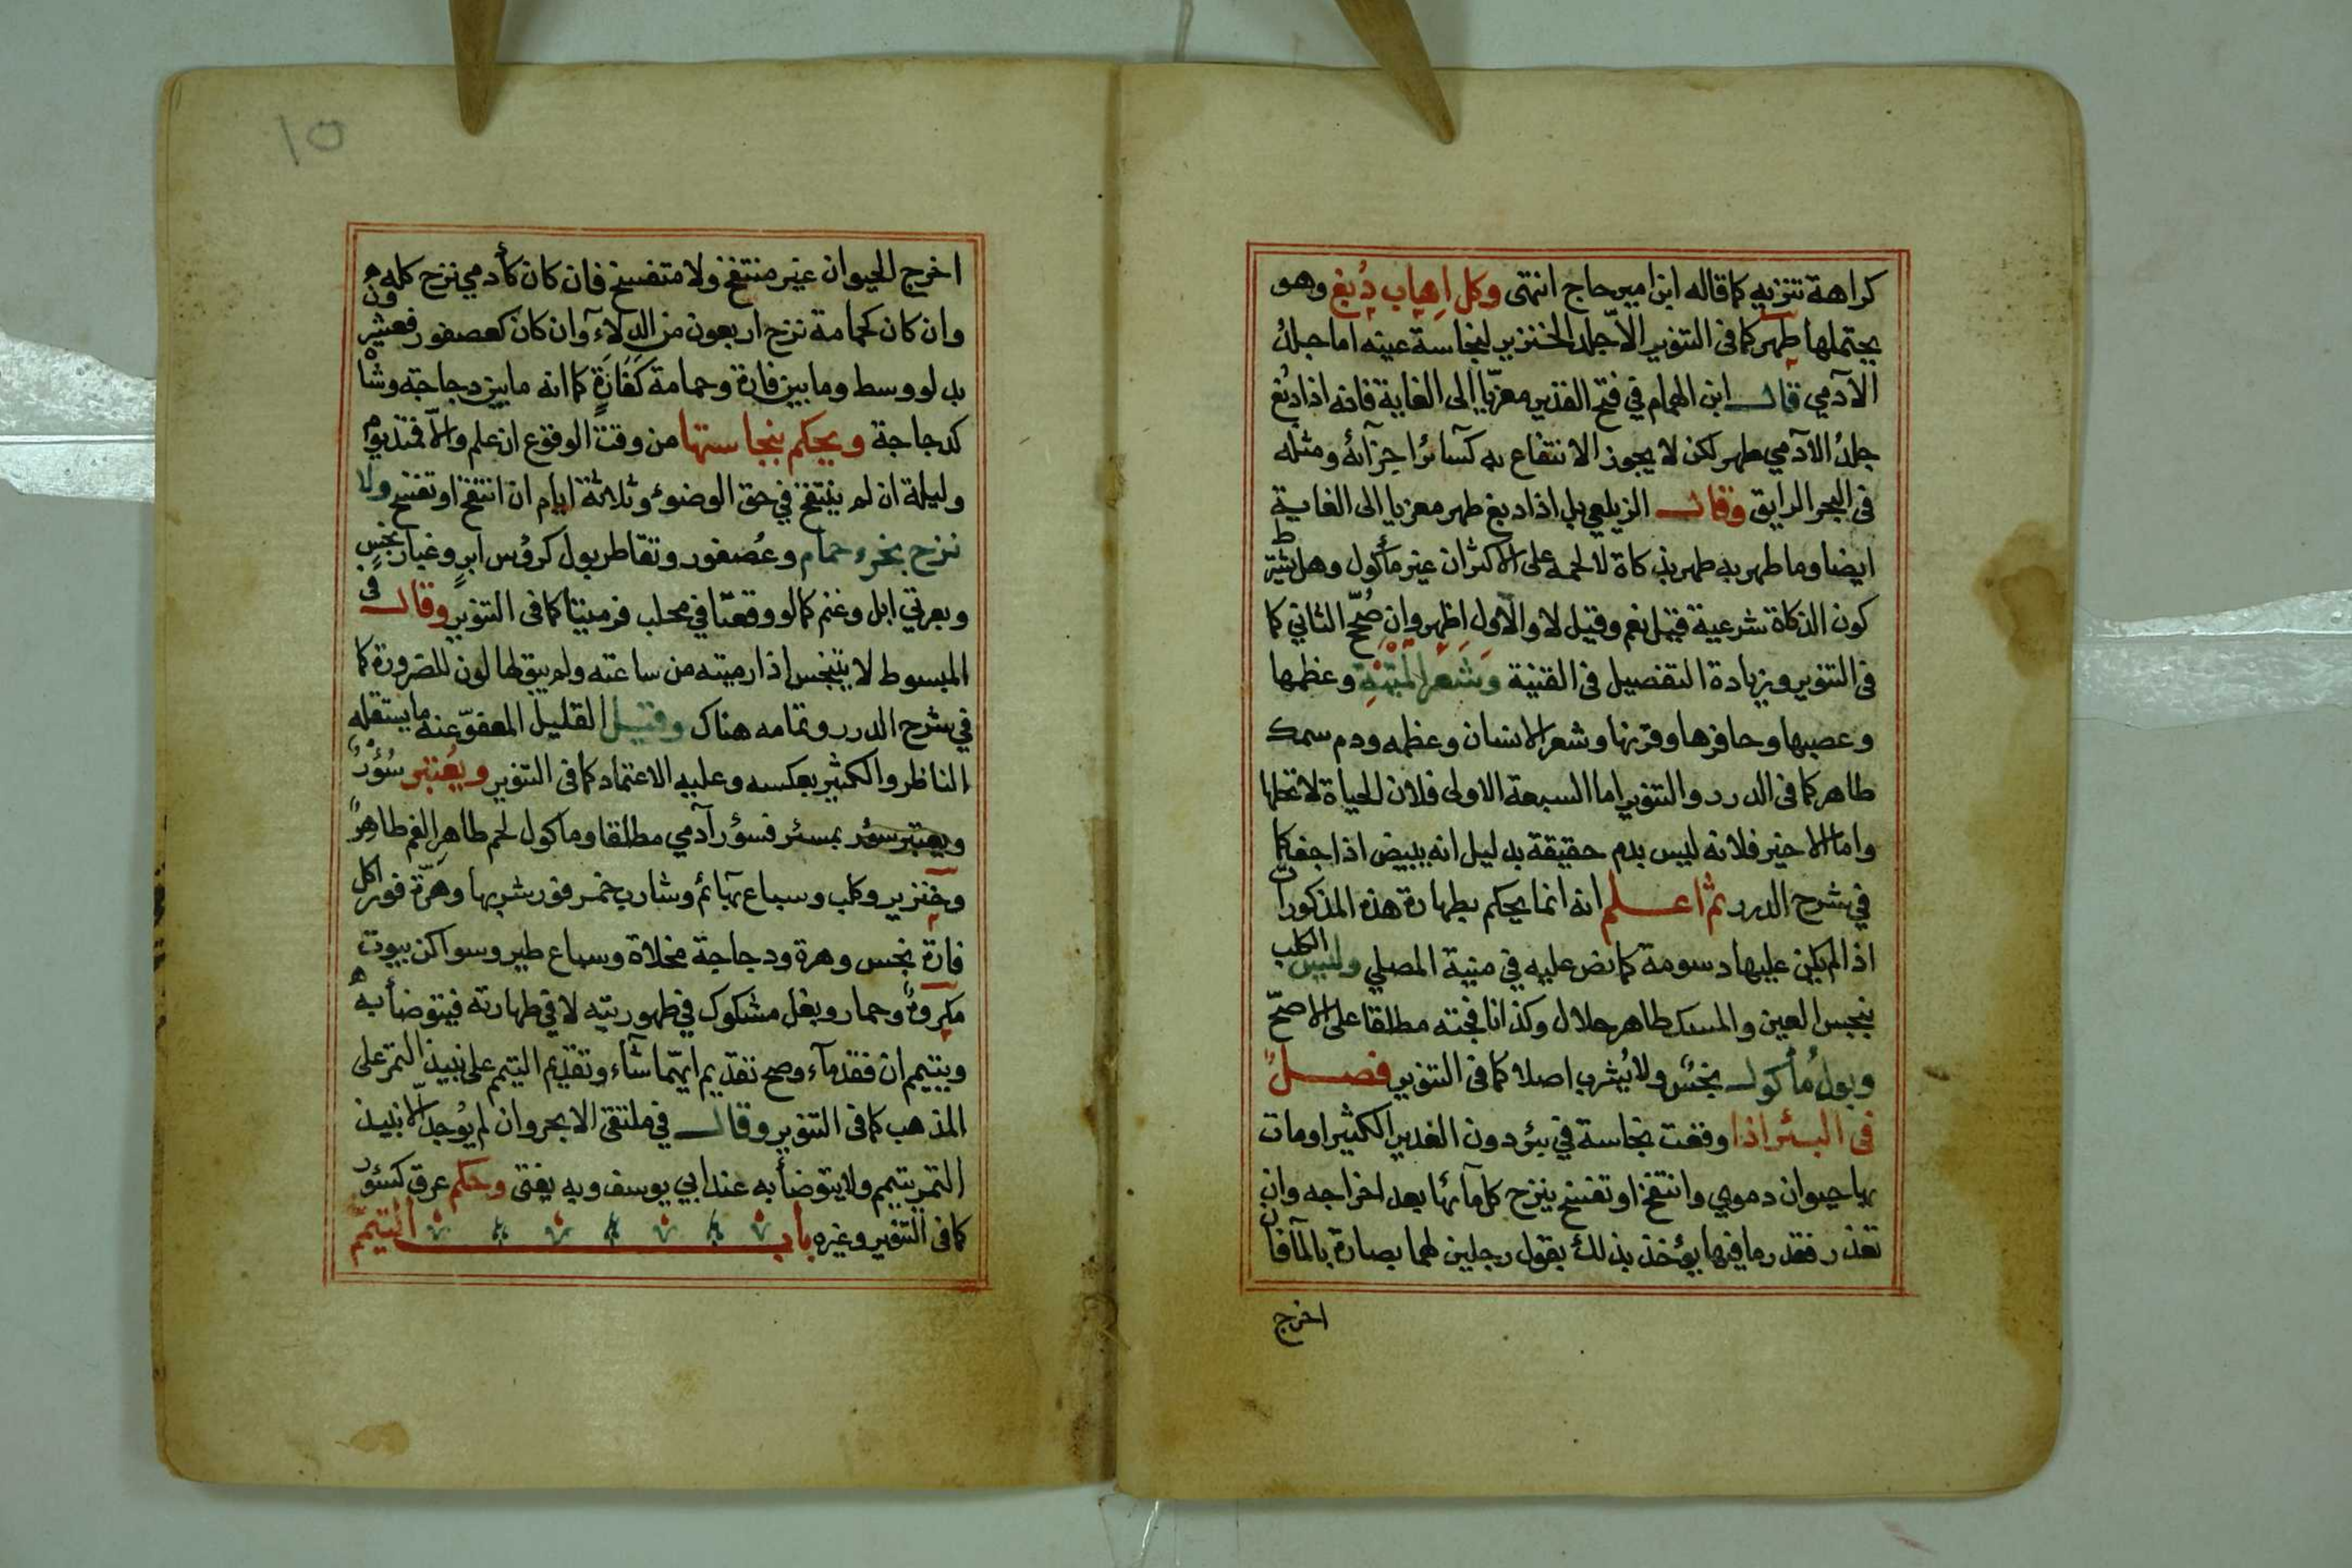 كراهة تنزيه كما قاله ابن امير حاج انتهى وكل اِهاب دُبغ وهو
يحتملها طهر كما فى التنوير الاّ جلد الخنزير لنجاسة عينه اما جلدُ
الآدمي قال ابن الهمام في فتح القدير معزّيا الى الغاية فانه اذا دُبغ
جلدُ الآدمي طهر لكن لا يجوز الانتفاع به كسآئر اجزآئه ومثله
فى البحر الرايق وقال الزيلعي بل اذا دبغ طهر معزيا الى الغاية
ايضا وما طهر به طهر بذكاة لا لحمه على الاكثر ان غير مأكول وهل يشترط
كون الذكاة شرعية قيل نعم وقيل لا والاول اظهر وان صُحّح الثاني كما
فى التنوير وزيادة التفصيل فى القنية وَشَعَرُ المَيْتَةِ وعظمها
وعصبها وحافرها وقرنها وشعر الانسان وعظمه ودم سمك
طاهر كما فى الدرر والتنوير اما السبعة الاولى فلان الحياة لا تحلها
واما الاخير فلانه ليس بدم حقيقة بدليل انه يبيض اذا جف كما
في شرح الدرر ثم اعلم انه انما يحكم بطهارة هذه المذكورات
اذا لم يكن عليها دسومة كما نص عليه في منية المصلي وليس الكلب
بنجس العين والمسك طاهر حلال وكذا نافجته مطلقا على الاصحّ
وبولُ مُأكول نجسٌ ولا يُشرب اصلا كما فى التنوير فصلٌ
فى البئر اذا وقعت نجاسة في بئر دون الغدير الكثير او مات
بها حيوان دموي وانتفخ او تفسخ ينزح كل مآئها بعد اخراجه وان
تعذر فقدر ما فيها يؤخذ بذلك بقول رجلين لهما بصارة بالمآ فان
اخرج
١٥
اخرج الحيوان غير منتفخ ولا متفسخ فان كان كأدمي نزح كله
وان كان كحمامة نزح اربعون من الدلآء وان كان كعصفور فعشرون
بدلو وسط وما بين فارة وحمامة كَفَارَةٍ كما انه ما بين دجاجة وشاه
كدجاجة ويحكم بنجاستها من وقت الوقوع ان علم والاّ فمنذ يوم
وليلة ان لم ينتفخ في حق الوضوء وثلاثة ايام ان انتفخ او تفسخ ولا
نزح بخرء حمام وعُصفور وتقاطر بول كرؤس ابرٍ وغبار نجسٍ
وبعرتي ابل وغنم كما لو وقعتا في محلب فرميتا كما فى التنوير وقال فى
المبسوط لا يتنجس اذا رميته من ساعته ولم يبق لها لون للضرورة كما
في شرح الدرر وتمامه هناك وقيل القليل المعفوّ عنه ما يستقله
الناظر والكثير بعكسه وعليه الاعتماد كما فى التنوير ويُعتبر سُؤْرٌ
ويعتبر سؤر بمسئر فسؤر آدمي مطلقا وماكول لحم طاهر الفم طاهِرٌ
وخنزير وكلب وسباع بهآئم وشارب خمر فور شربها وهرّة فور اكل
فارة نجس وهرة ودجاجة مخلاة وسباع طير وسواكن بيوت
مكروهٌ وحمار وبغل مشكوك في طهوريته لا في طهارته فيتوضأ به
ويتيمم ان فقد مآء وصح تقديم ايّهما شآء وتقديم التيمم على نبيذ التمر على
المذهب كما فى التنوير وقال في ملتقى الابحر وان لم يُوجد الاّ نبيذ
التمر يتيمم ولا يتوضأ به عند ابي يوسف وبه يفتى وحكم عرق كسؤر
كما فى التنوير وغيره باب التيمم